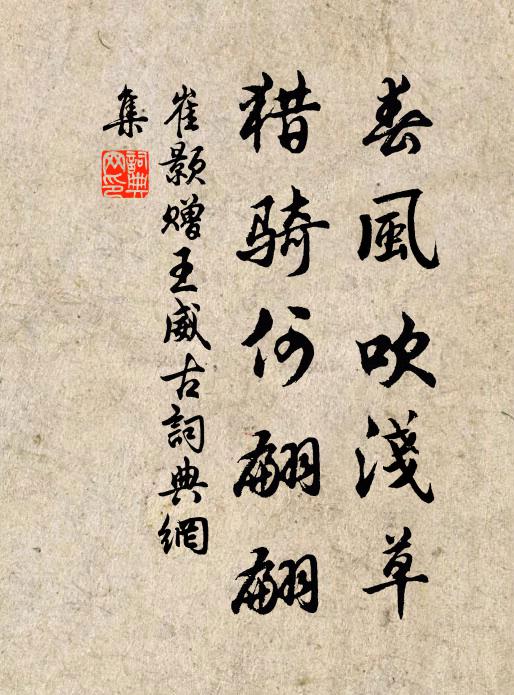 春風吹淺草
猎骑何翩翩
崔颢赠王威古詞典網
集
詞典網印